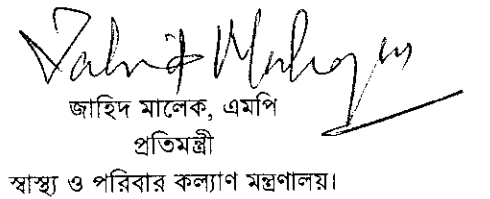 জাহিদ মালেক, এমপি
প্রতিমন্ত্রী
স্বাস্থ্য ও পরিবার কল্যাণ মন্ত্রণালয়।